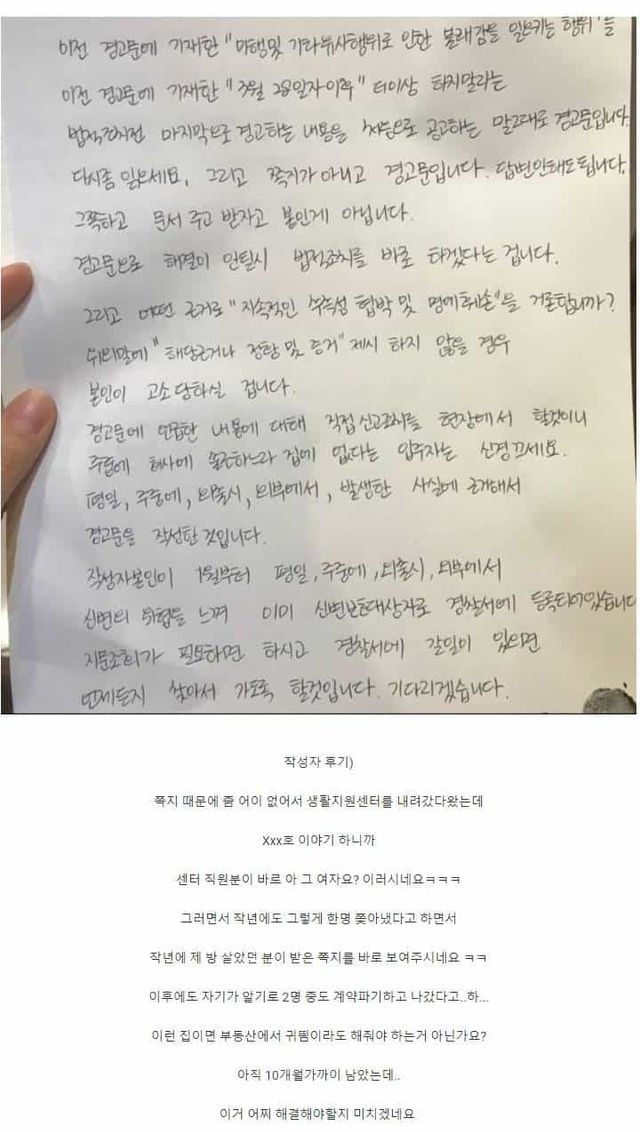 이전 경고문에 기재한 "미행및 기타유사행위로 인한 불쾌감을 일으키는 행위"를
이전 경고문에 기재한 "3월 28일자이후" 더이상 하지말라는
법적조치전 마지막으로 경고하는 내용을 최종으로 공고하는 말그대로 경고문입니다.
다시좀 읽으세요, 그리고 쪽지가 아니고 경고문입니다. 답변안해도됩니다.
그쪽하고 문서 주고 받자고 붙인게 아닙니다.
경고문으로 해결이 안될시 법적조치를 바로 하겠다는 겁니다.
그리고 어떤 근거로 "지속적인 협박 및 명예훼손"을 거론합니까?
뒤의말에 "해당근거나 정황 및 증거" 제시 하지 않을 경우
본인이 고소 당하실 겁니다.
경고문에 언급한 내용에 대해 직접 신고조치를 현장에서 할것이니
주중에 회사에 출근하느라 집에 없다는 입주자는 신경끄세요.
평일, 주중에, 외출시, 외부에서, 발생한 사실에 근거해서
경고문을 작성한것입니다.
작성자본인이 1월부터 평일, 주중에, 외출시, 외부에서
신변의 위협을 느껴 이미 신변보호대상자로 경찰서에 등록되어있습니다
지문조회가 필요하면 하시고 경찰서에 갈일이 있으면
언제든지 찾아서 가도록 할것입니다. 기다리겠습니다.
작성자 후기)
쪽지 때문에 좀 어이 없어서 생활지원센터를 내려갔다왔는데
Xxx호 이야기 하니까
센터 직원분이 바로 아 그 여자요? 이러시네요ㅋㅋㅋ
그러면서 작년에도 그렇게 한명 쫓아냈다고 하면서
작년에 제 방 살았던 분이 받은 쪽지를 바로 보여주시네요 ㅋㅋ
이후에도 자기가 알기로 2명 중도 계약파기하고 나갔다고..하...
이런 집이면 부동산에서 귀띔이라도 해줘야 하는거 아닌가요?
아직 10개월가까이 남았는데..
이거 어찌 해결해야할지 미치겠네요